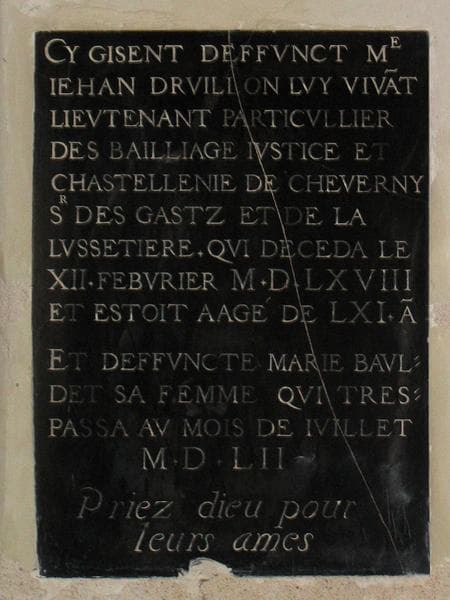 CY GISENT DEFFVNCT Mᴱ
IEHAN DRVILLON LVY VIVÃT
LIEVTENANT PARTICVLLIER
DES BAILLIAGE IVSTICE ET
CHASTELLENIE DE CHEVERNY
Sᴿ DES GASTZ ET DE LA
LVSSETIERE. QVI DECEDA LE
XII·FEBVRIER M·D·LXVIII
ET ESTOIT AAGÉ DE LXI·Ã
ET DEFFVNCTE MARIE BAVL:
DET SA FEMME QVI TRES:
PASSA AV MOIS DE IVILLET
M·D·LII
Priez dieu pour
leurs ames